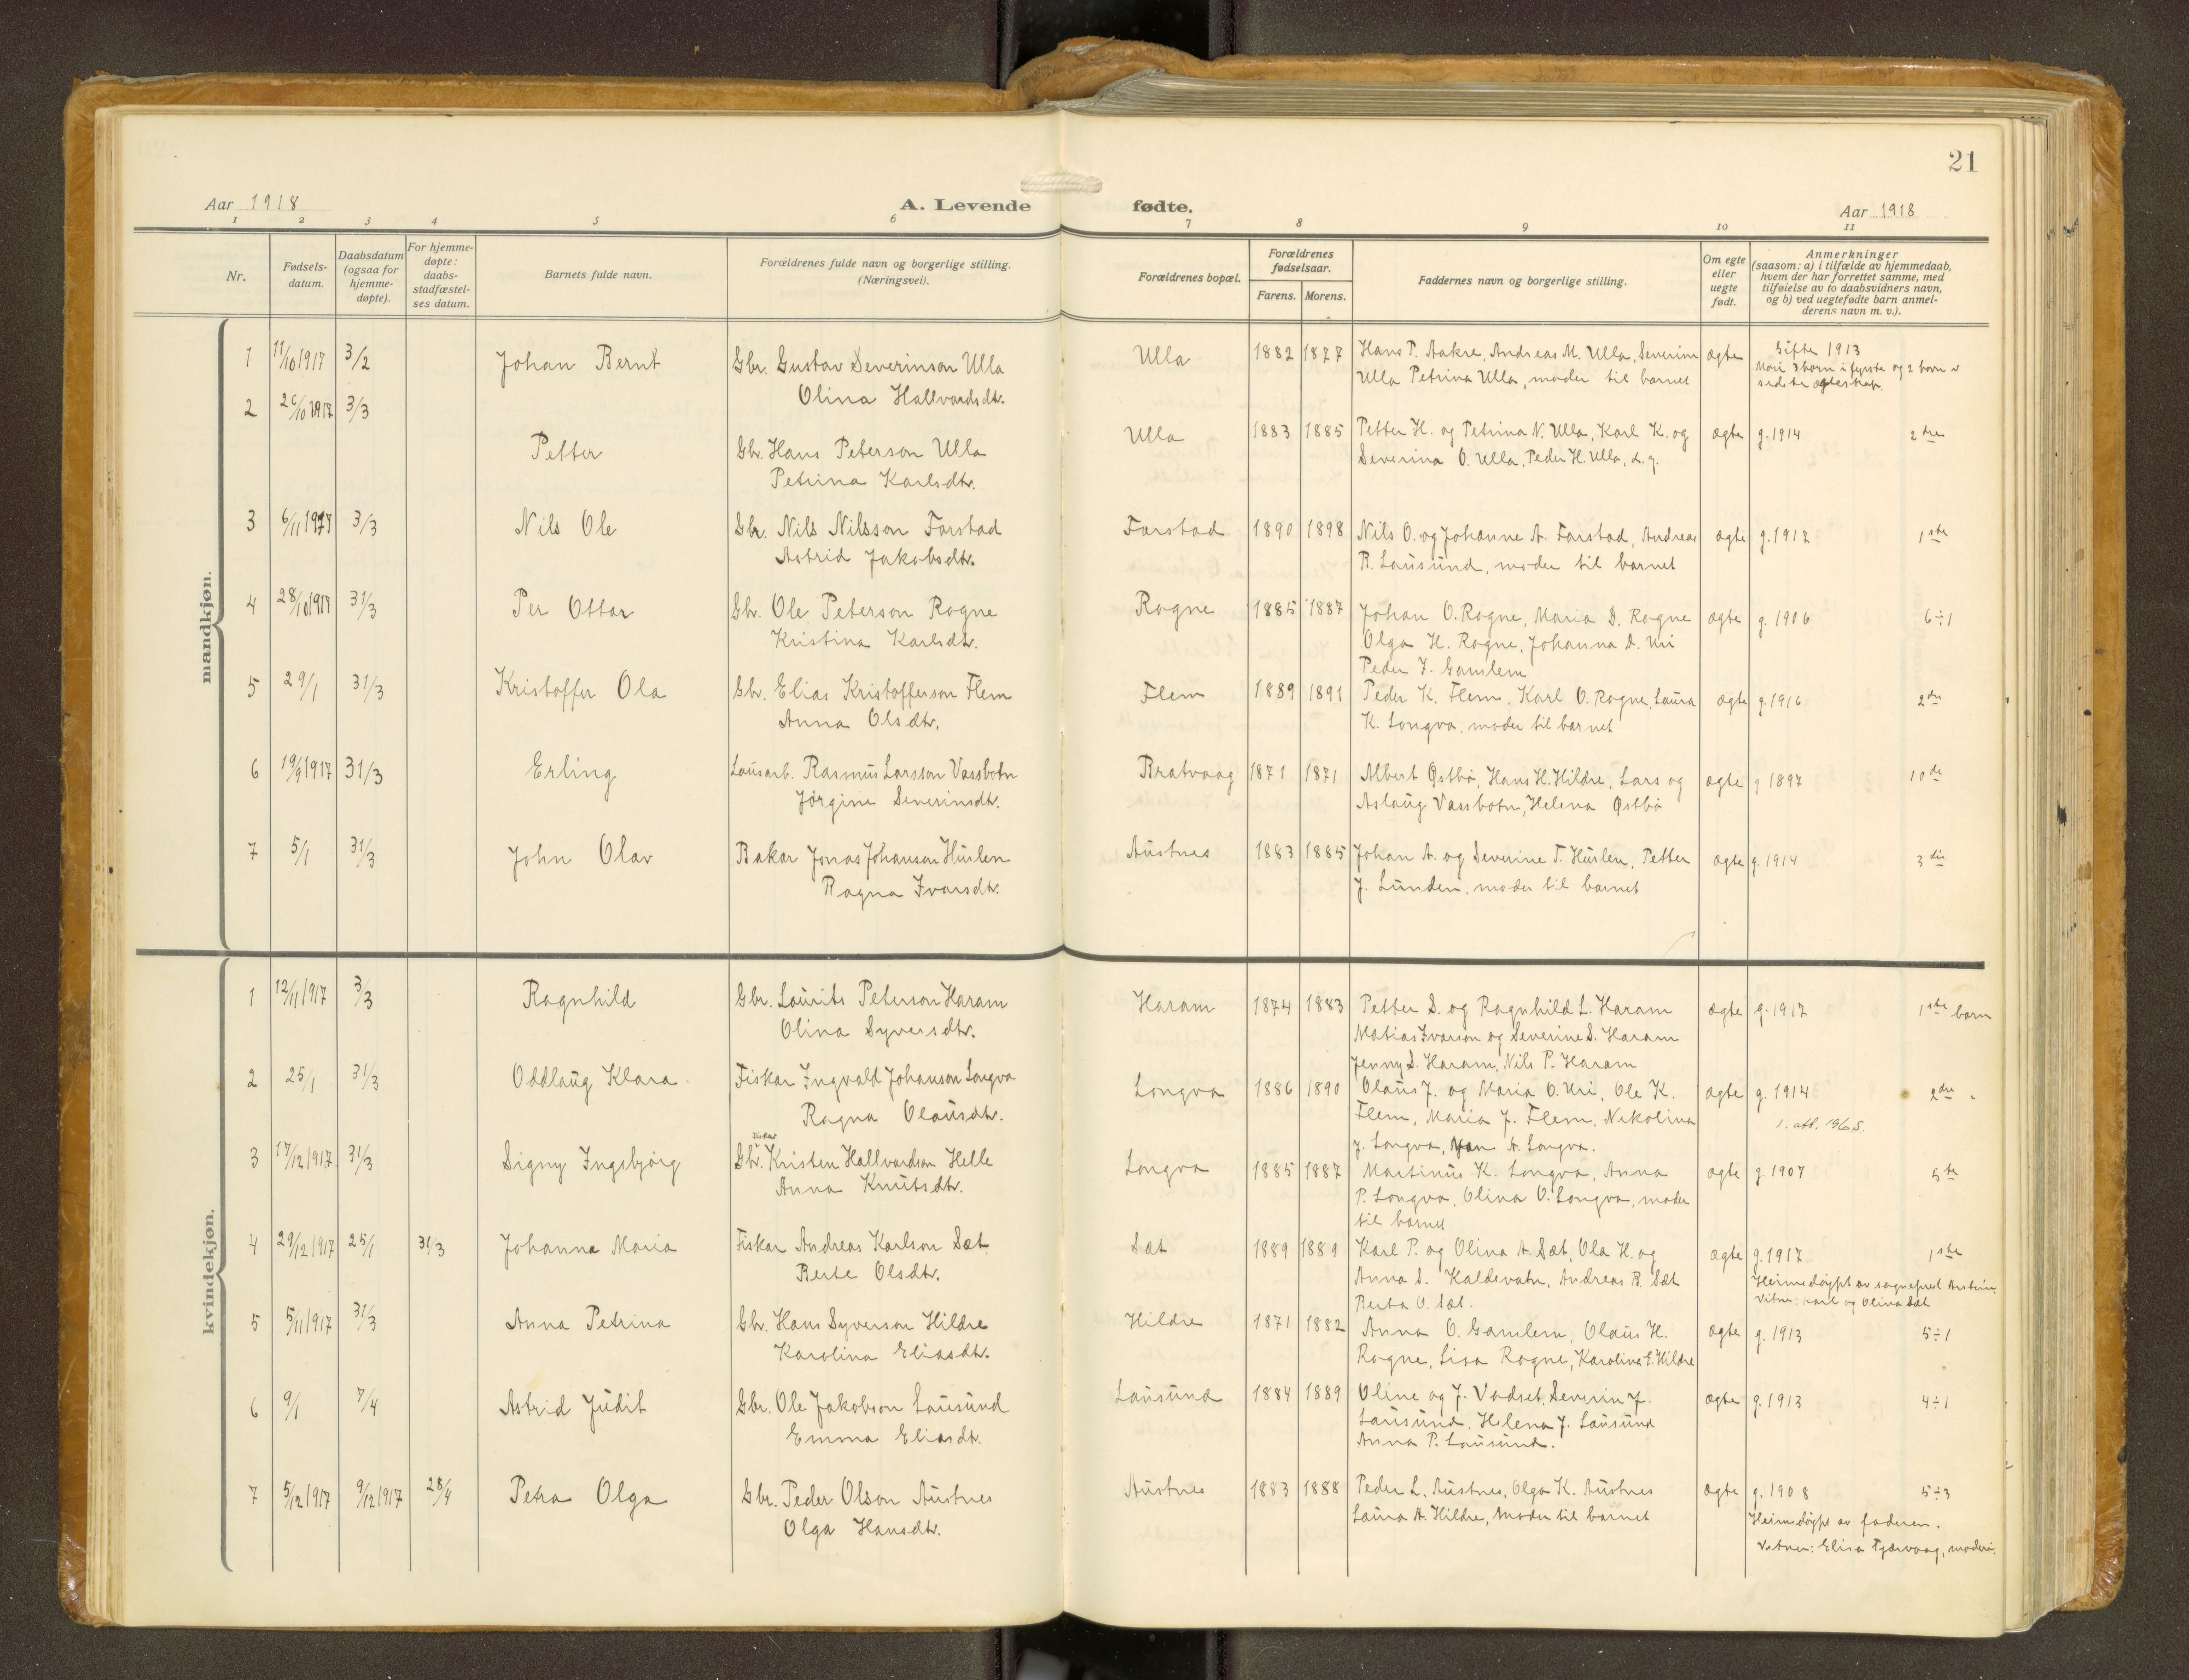 21
Aar 1918
A. Levende fødte.
Aar 1918
1 2 3 4 5 6 7 8 9 10 11
Nr.
Fødsels-
datum.
Daabsdatum
(ogsaa for
hjemme-
døpte).
For hjemme-
døpte:
daabs-
stadfæstel-
ses datum.
Barnets fulde navn.
Forældrenes fulde navn og borgerlige stilling.
(Næringsvei).
Forældrenes bopæl.
Forældrenes
fødselsaar.
Farens. Morens.
Faddernes navn og borgerlige stilling.
Om egte
eller
uegte
født.
Anmerkninger
(saasom: a) i tilfælde av hjemmedaab,
hvem der har forrettet samme, med
tilføielse av to daabsvidners navn,
og b) ved uegtefødte barn anmel-
derens navn m. v.).
mandkjøn.
1 11/10 1917 3/2 Johan Bernt Gbr. Gustav Severinson Ulla Ulla 1882 1877 Hans P. Aakre, Andreas M. Ulla, Severin ægte Gifte 1913
Olina Hallvardsdtr. Ulla Petrina Ulla, moder til barnet
3 born i fyrste og 2 born i
sidste ægteskap.
2 26/10 1917 3/3
Petter Gbr. Hans Peterson Ulla Ulla 1883 1885 Petter H. og Petrina N. Ulla, Karl K. og ægte g. 1914 2dre
Petrina Karlsdtr. Severina O. Ulla, Peder H. Ulla, d. y.
3 6/11 1917 3/3 Nils Ole Gbr. Nils Nilsson Farstad Farstad 1890 1898 Nils O. og Johanne A. Farstad, Andreas ægte g. 1917 1ste
Astrid Jakobsdtr. R. Lausund, moder til barnet
4 28/10 1917 31/3 Per Ottar Gbr. Ole Peterson Rogne Rogne 1885 1887 Johan O. Rogne, Maria D. Rogne ægte g. 1906 6÷1
Kristina Karlsdtr. Olga H. Rogne, Johanna D. Uri
Peder J. Gamlem
5 29/1 31/3 Kristoffer Ola Gbr. Elias Kristofferson Flem Flem 1889 1891 Peder K. Flem, Karl O. Rogne, Laura ægte g. 1916 2dre
Anna Olsdtr. K. Longva, moder til barnet
6 19/9 1917 31/3 Erling Lausarb. Rasmus Larsson Vassbotn Bratvaag 1871 1871 Albert Østbø, Hans H. Hildre, Lars og ægte g 1897 10de
Jørgine Severinsdtr. Aslaug Vassbotn, Helena Østbø
7 5/1 31/3 John Olav Bakar Jonas Johanson Huslen Austnes 1883 1885 Johan A. og Severine T. Huslen, Petter ægte g. 1914 3die
Ragna Ivarsdtr. J. Lunden, moder til barnet
kvindekjøn.
1 12/11 1917 3/3 Ragnhild Gbr. Laurits Peterson Haram Haram 1874 1883 Petter S. og Ragnhild L. Haram ægte g. 1917 1ste barn
Olina Syversdtr. Matias Ivarson og Severine S. Haram
Jenny S. Haram, Nils P. Haram
2 25/1 31/3 Oddlaug Klara Fiskar Ingvald Johanson Longva Longva 1886 1890 Olaus J. og Maria O. Uri, Ole K. ægte g. 1914 2dre "
Ragna Olausdtr. Flem, Maria J. Flem, Nikolina 1. att. 1965.
J. Longva, A. Longva.
fiskar
3 17/12 1917 31/3 Signy Ingebjørg Gbr. Kristen Hallvardson Helle Longva 1885 1887 Martinus K. Longva, Anna ægte g. 1907 5te
Anna Knutsdtr. P. Longva, Olina O. Longva, moder
til barnet
4 29/12 1917 25/1 31/3 Johanna Maria Fiskar Andreas Karlson Sæt Sæt 1889 1889 Karl P. og Olina A. Sæt, Ola H. og ægte g. 1917 1ste
Berte Olsdtr. Anna S. Kaldevatn, Andreas R. Sæt Heimedøypt av sogneprest
Berta O. Sæt. Vitne: Karl og Olina Sæt
5 5/11 1917 31/3 Anna Petrina Gbr. Hans Syverson Hildre Hildre 1871 1882 Anna O. Gamlem, Olaus H. ægte g. 1913 5÷1
Karolina Eliasdtr. Rogne, Lisa Rogne, Karolina E. Hildre
6 9/1 7/4 Astrid Judit Gbr. Ole Jakobson Lausund Lausund 1884 1889 Oline og J. Vadset, Severin J. ægte g. 1913 4÷1
Emma Eliasdtr. Lausund, Helena J. Lausund
Anna P. Lausund.
7 5/12 1917 9/12 1917 28/4 Petra Olga Gbr. Peder Olson Austnes Austnes 1883 1888 Peder L. Austnes, Olga K. Austnes ægte g. 1908 5÷3
Olga Hansdtr. Laura A. Hildre, moder til barnet Heimedøypt av faderen.
Vitner: Elisa Tjærvaag, moderi.